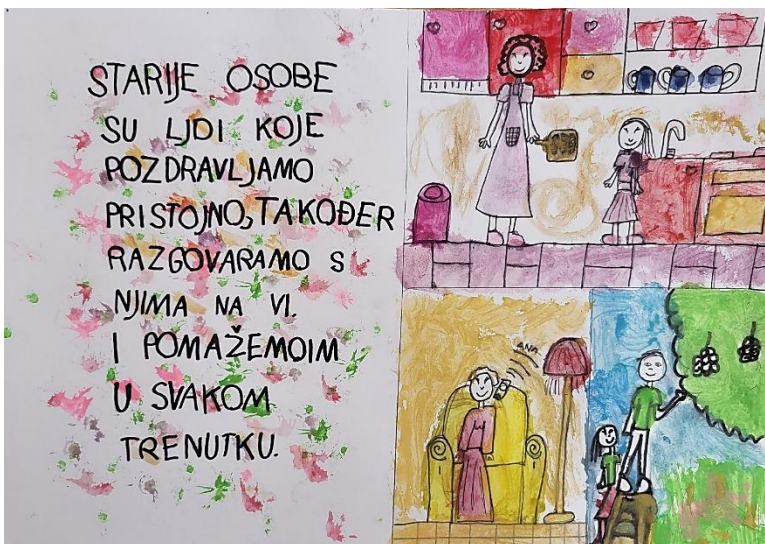 STARIJE OSOBE
SU LJDI KOJE
POZDRAVLJAMO
PRISTOJNO, TAKOĐER
RAZGOVARAMO S
NJIMA NA VI.
I POMAŽEMOIM
U SVAKOM
TRENUTKU.
ANA